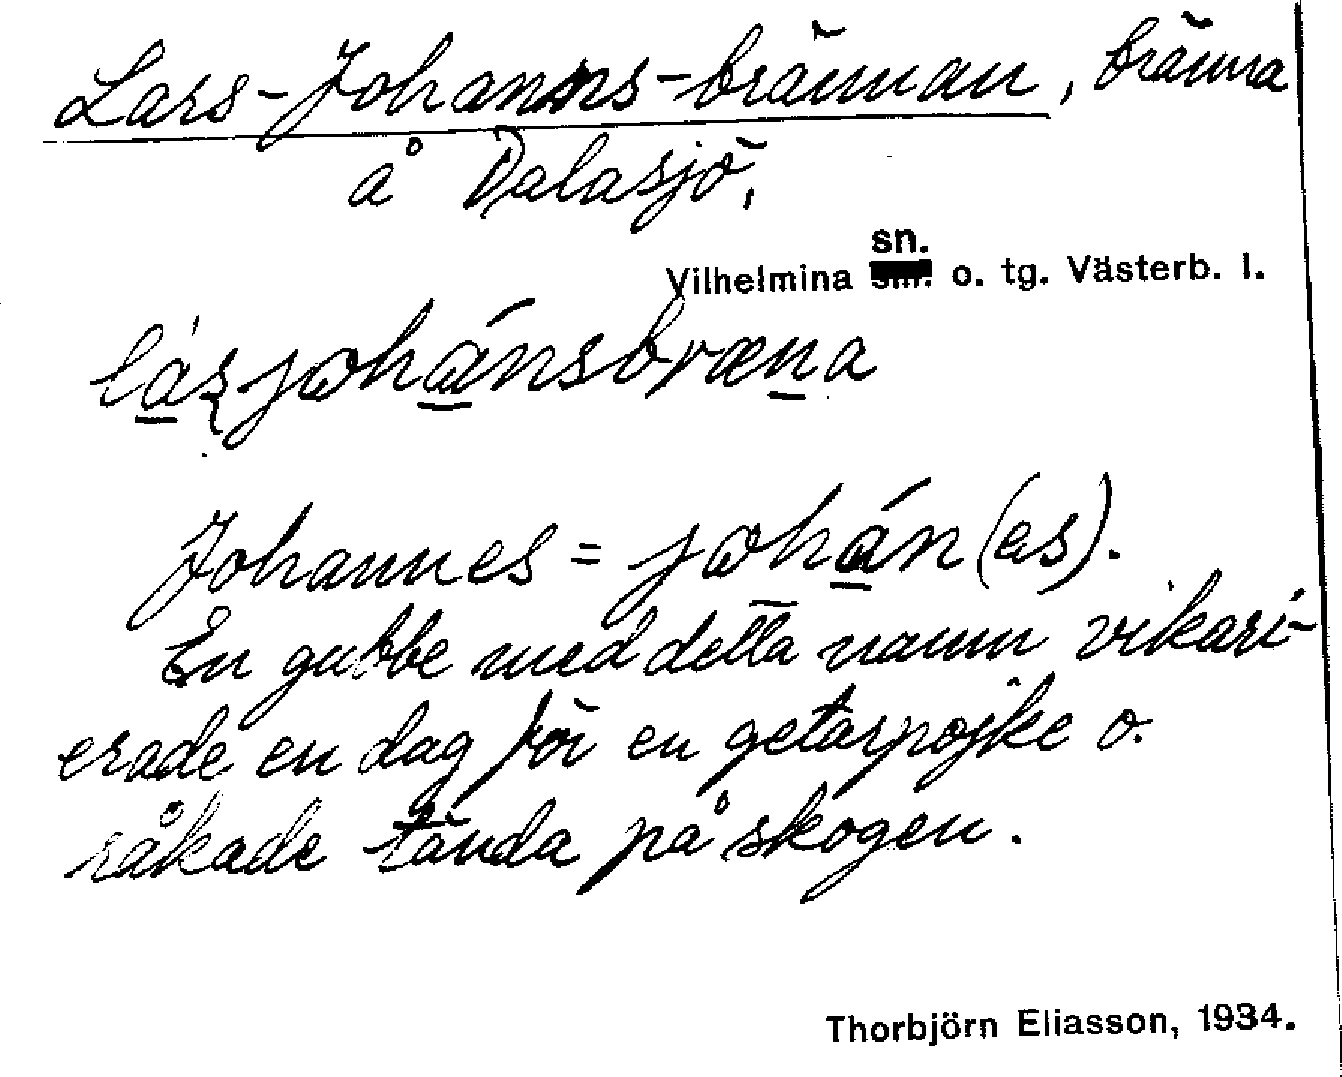 Lars-Johanns-brännan, bränna
å Dalasjö,
sn.
Vilhelmina o. tg. Västerb. l.
lásjohánsbræna
Johannes = johán(es).
En gubbe med detta namn vikari-
erade en dag för en getarpojke o.
råkade tända på skogen.
Thorbjörn Eliasson, 1934.